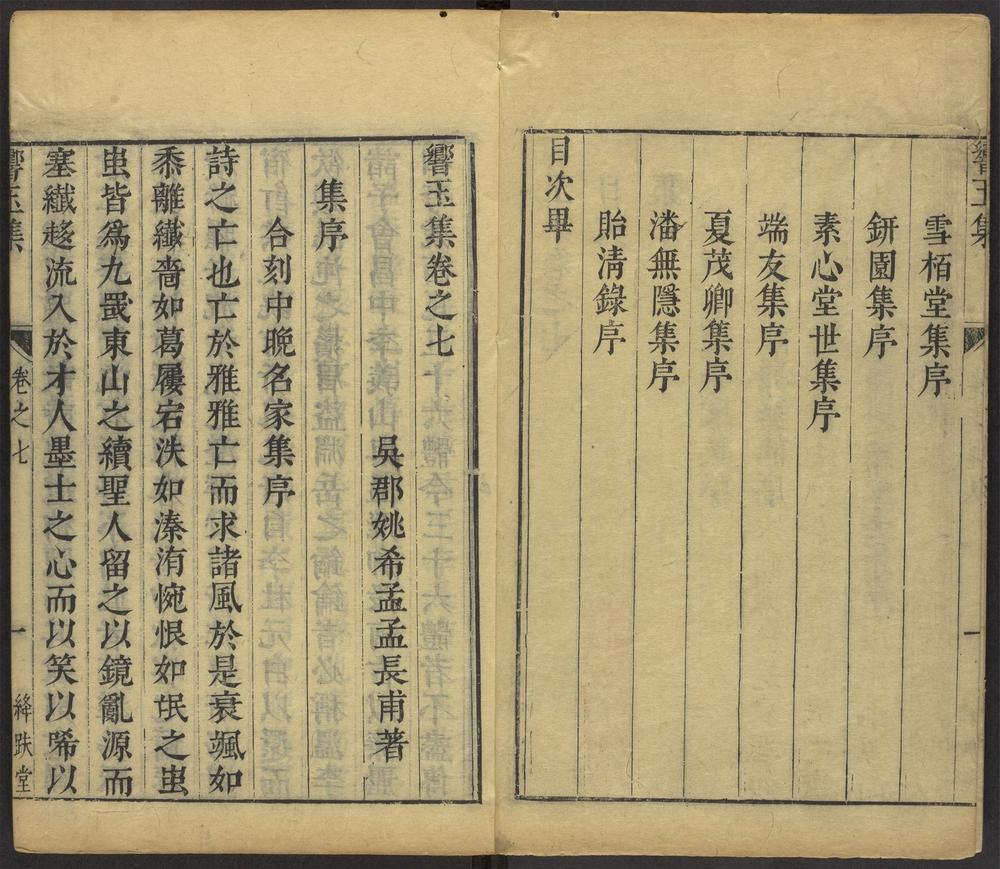 響玉集
一
雪栢堂集序
研園集序
素心堂世集序
端友集序
夏茂卿集序
潘無隱集序
貽淸錄序
目次畢
響玉集卷之七
吳郡姚希孟孟長甫著
集序
合刻中晚名家集序
詩之亡也亡於雅雅亡而求諸風於是衰颯如
黍離纖嗇如葛屨宕泆如溱洧惋恨如氓之蚩
蚩皆爲九罭東山之續聖人留之以鏡亂源而
塞纖趍流入於才人墨士之心而以笑以唏以
響玉集
卷之七
一
絳趺堂